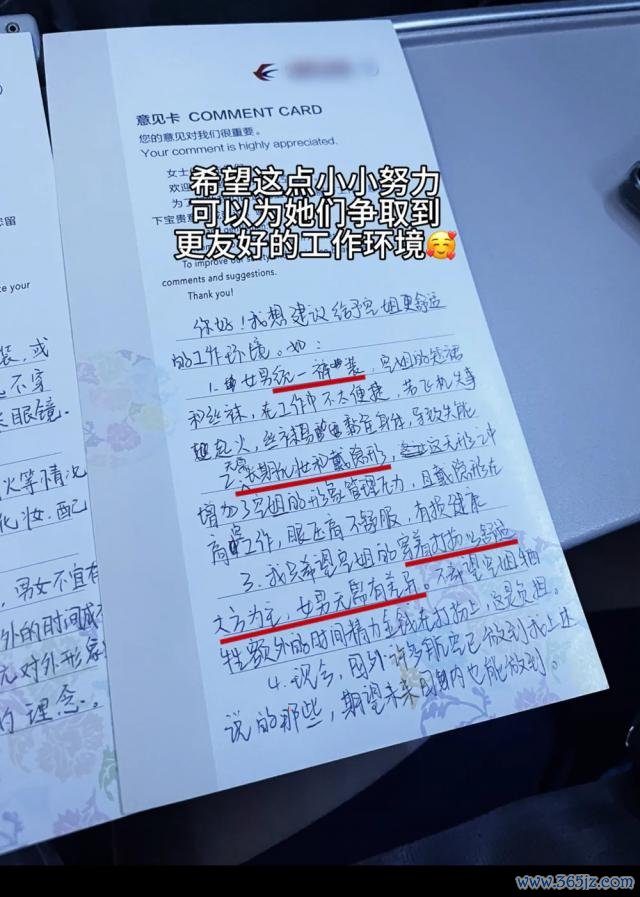 意见卡 COMMENT CARD
您的意见对我们很重要。
Your comment is highly appreciated.
女士
欢迎
为了
下宝贵意
希望这点小小努力
可以为她们争取到
更友好的工作环境🥰
To improve our
comments and suggestions.
Thank you!
你好!我想建议给予空姐更舒适
的工作环境。如:
1. 女男统一裤装,空姐的短裙
和丝袜,在工作中不太便捷,若飞机失事
起火,丝袜易黏在身体,导致失能
2. 无需长期化妆和戴隐形,这无形之中
增加了空姐的形象管理压力,且戴隐形在
高空工作,眼压高不舒服,有损健康
3. 我只希望空姐的穿着打扮以舒适
大方为主,女男无需有差异。不希望空姐牺
牲额外的时间精力金钱在打扮上,这是负担。
4. 现今,国外许多航空已做到我上述
说的那些,期望未来国内也能做到。
您留
ce your
装,或
长眼镜.
火等情况
化妆.配
男女不宜有
外的时间成
无对外形象
的理念。
www.365jz.com